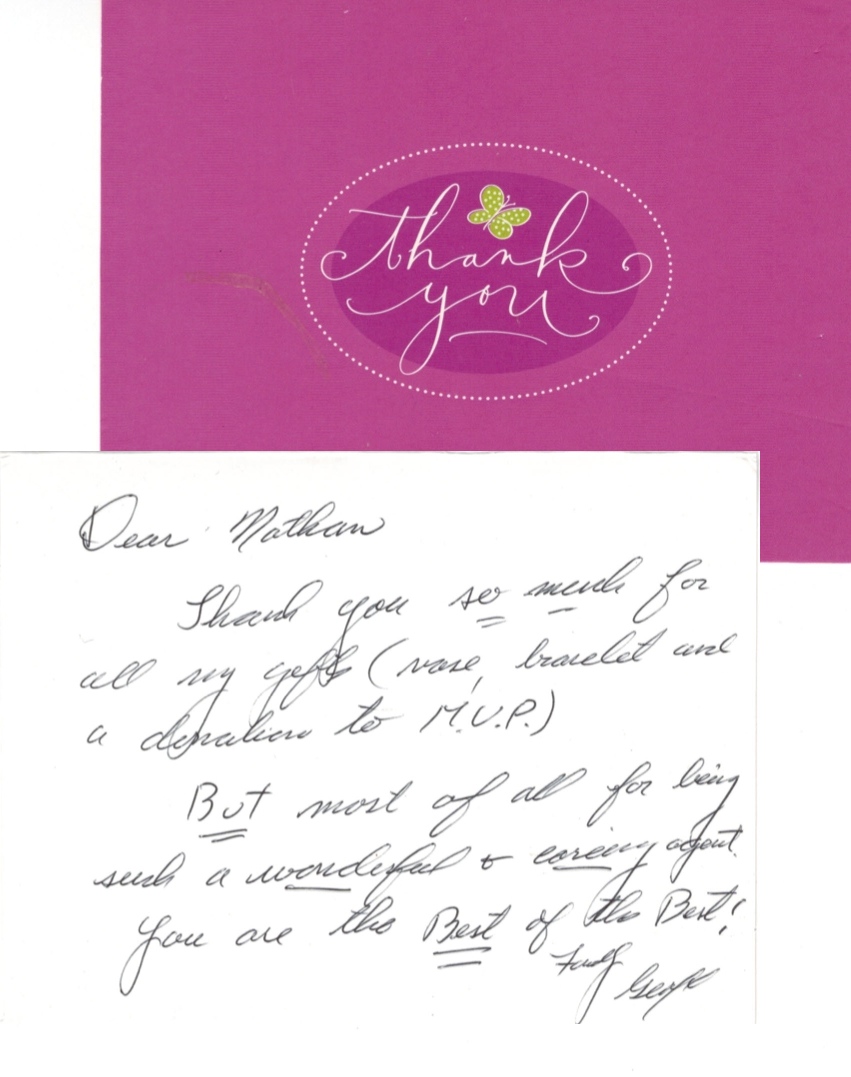 thank
you
Dear Nathan
Thank you so much for
all my gifts (vase, bracelet and
a donation to M.V.P.)
But most of all for being
such a wonderful & caring agent.
You are the Best of the Best!